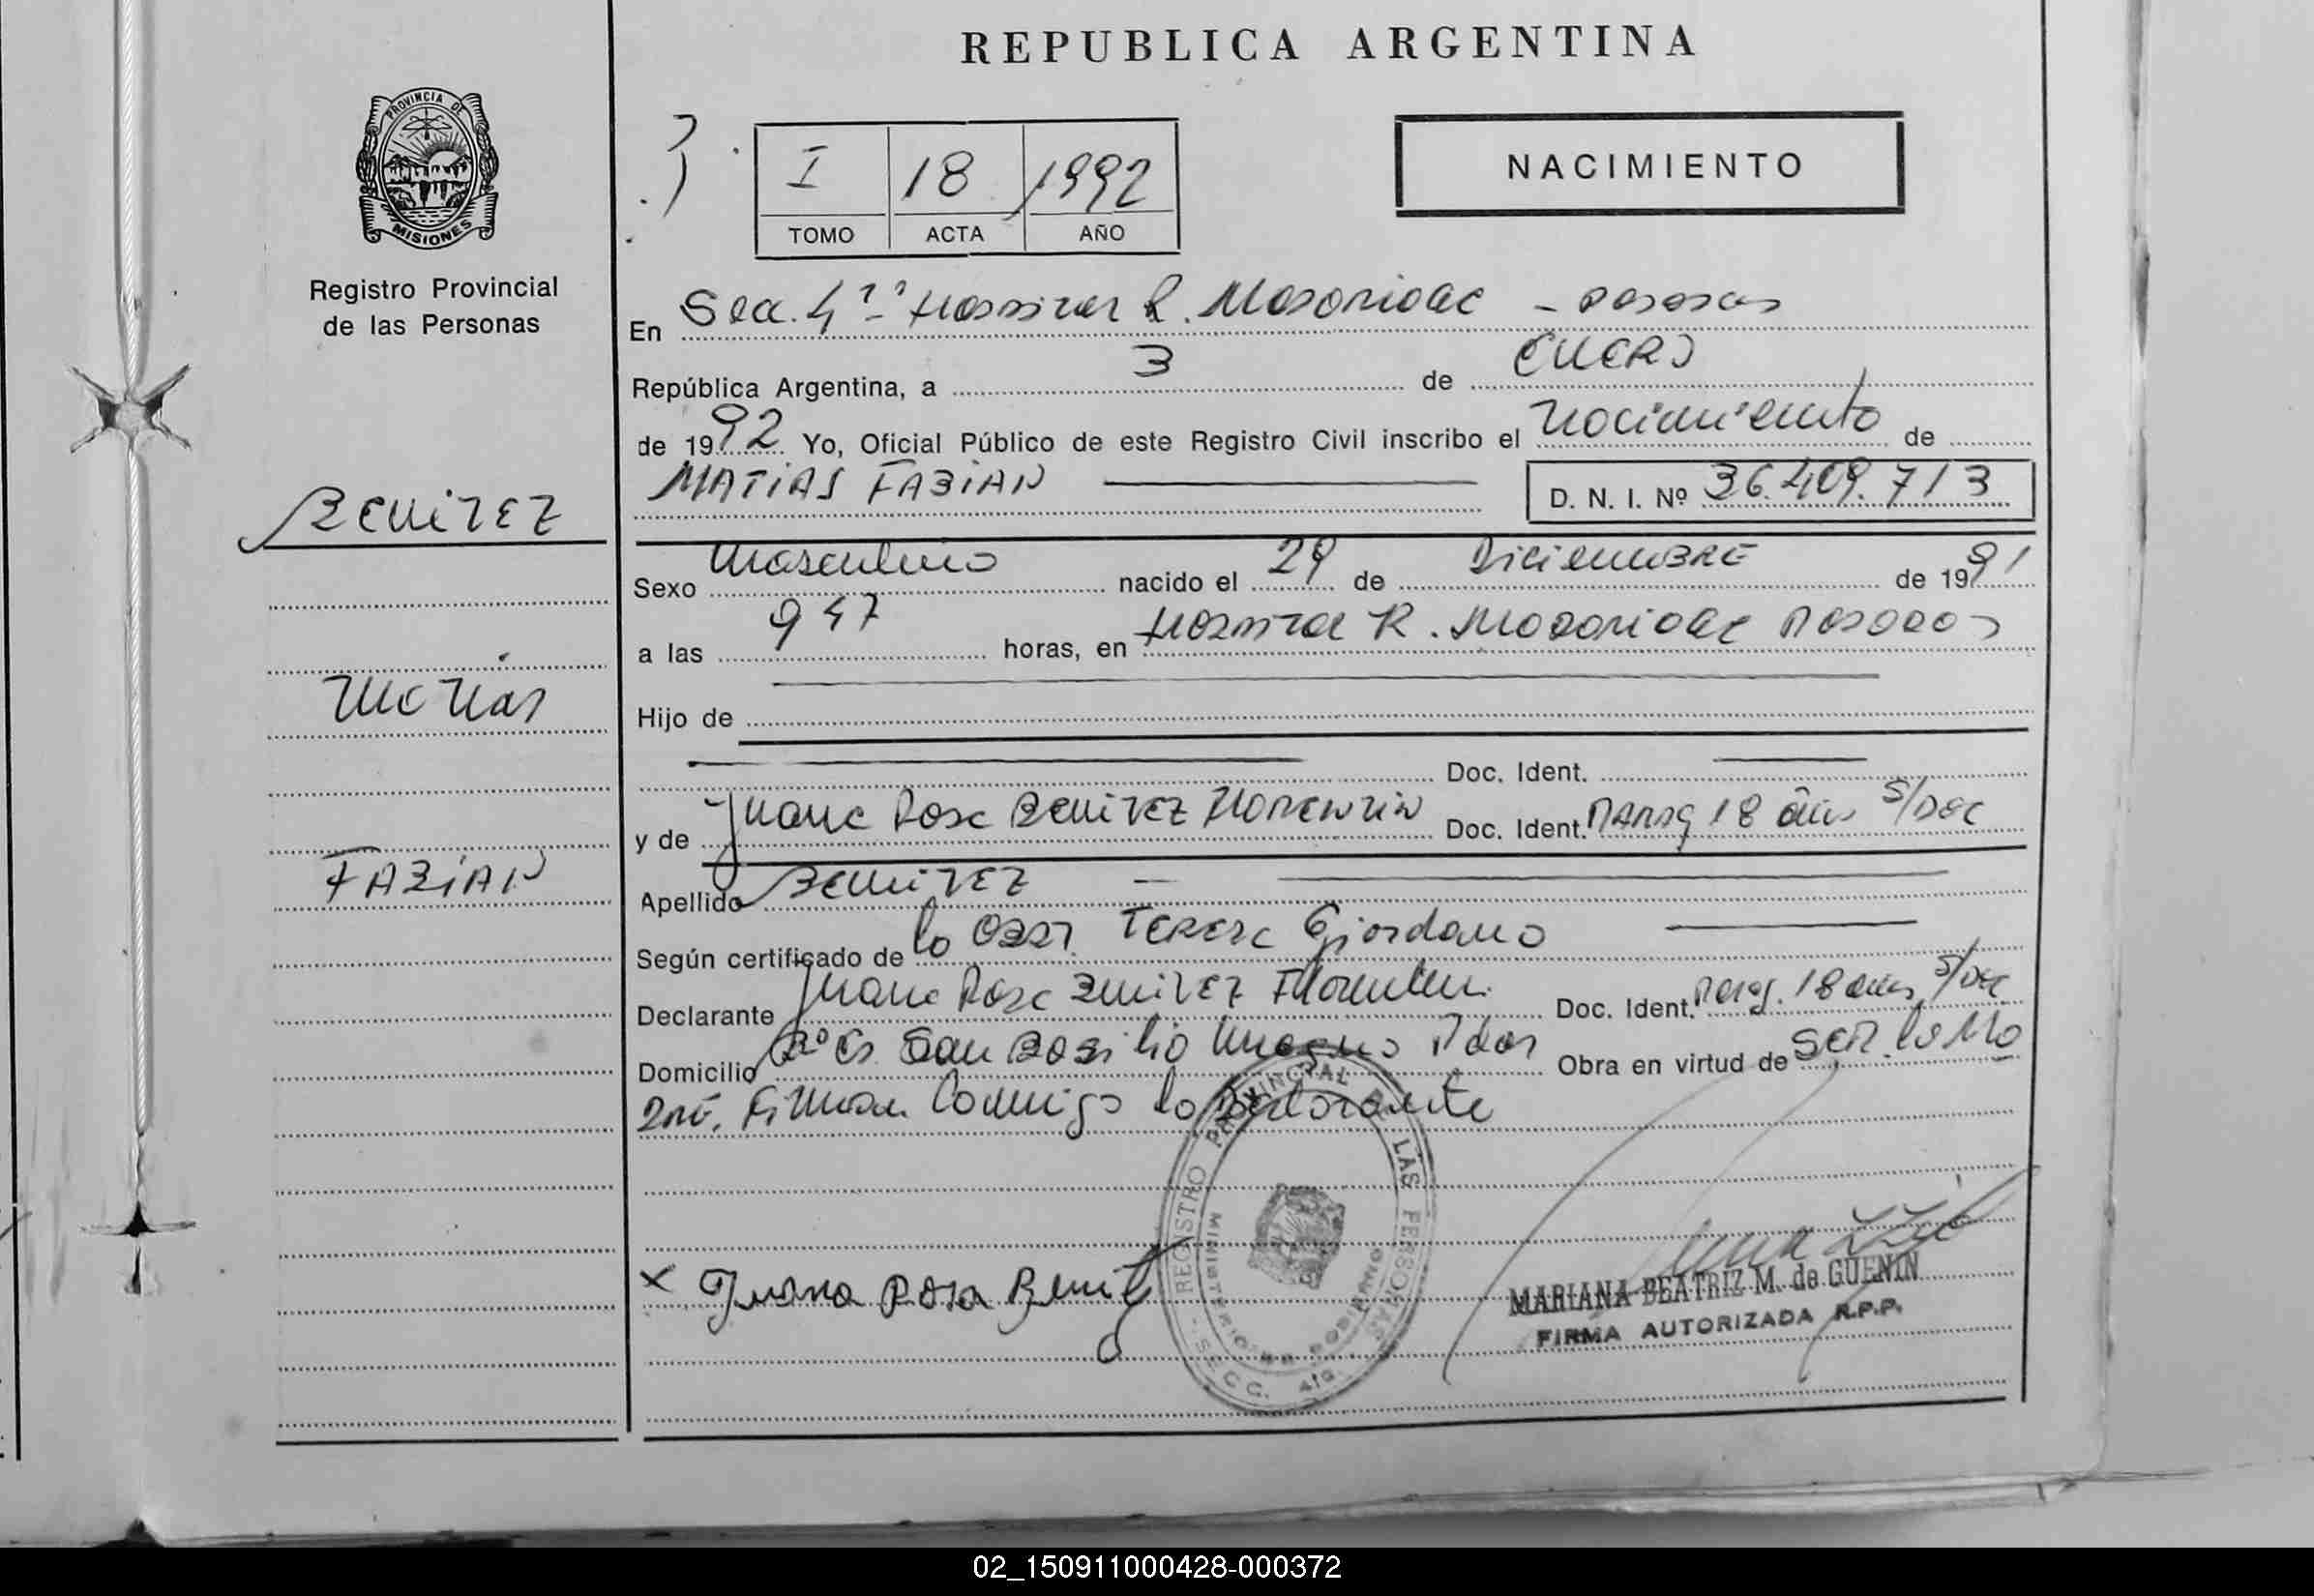 REPUBLICA ARGENTINA
PROVINCIA DE
MISIONES
Registro Provincial
de las Personas
I 18 1992
TOMO ACTA AÑO
NACIMIENTO
En Secc. 4ta Hospital R. Madariaga - Posadas
República Argentina, a 3 de ENERO
de 1992 Yo, Oficial Público de este Registro Civil inscribo el nacimiento de
MATIAS FABIAN
D. N. I. Nº 36.409.713
BENITEZ
Sexo masculino nacido el 29 de Diciembre de 1991
a las 9 47 horas, en Hospital R. Madariaga Posadas
MATIAS
Hijo de
Doc. Ident.
y de Juana Rosa BENITEZ FLORENTIN Doc. Ident. Parag 18 años s/Doc
FABIAN
Apellido BENITEZ
Según certificado de la Obst. Teresa Giordano
Declarante Juana Rosa Benitez Florentin Doc. Ident. Parag. 18 años s/Doc
Domicilio San Basilio Magno Pdas Obra en virtud de ser la Ma
dre. Firma conmigo la declarante
REGISTRO PROVINCIAL DE LAS PERSONAS
MINISTERIO DE GOBIERNO
SECC. 4ta
x Juana Rosa Benitez
MARIANA BEATRIZ M. de GUENIN
FIRMA AUTORIZADA R.P.P.
02_150911000428-000372